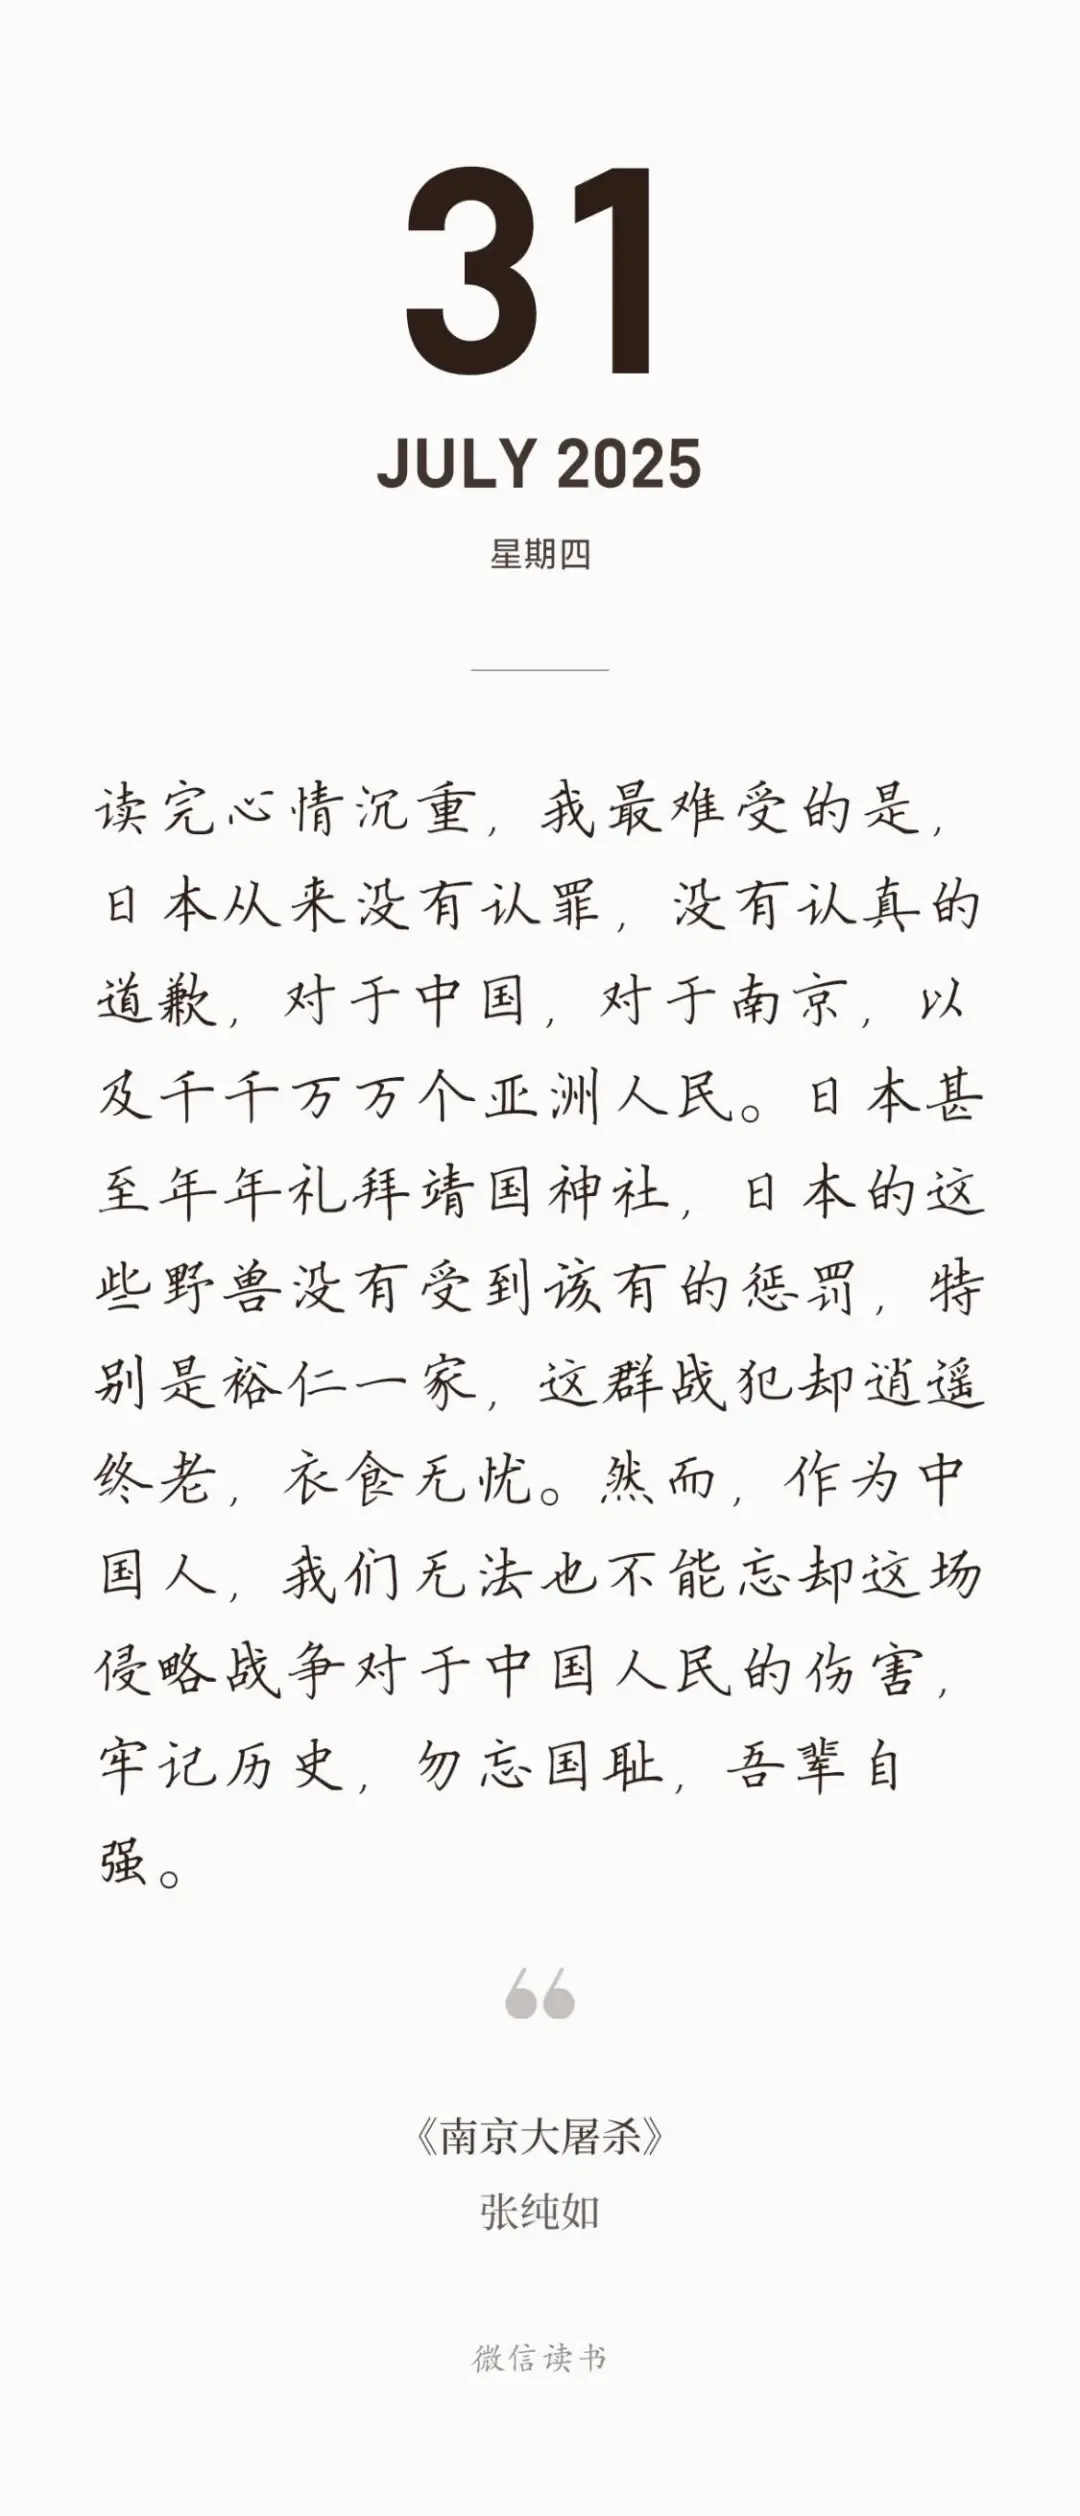 31
JULY 2025
星期四
读完心情沉重，我最难受的是，
日本从来没有认罪，没有认真的
道歉，对于中国，对于南京，以
及千千万万个亚洲人民。日本甚
至年年礼拜靖国神社，日本的这
些野兽没有受到该有的惩罚，特
别是裕仁一家，这群战犯却逍遥
终老，衣食无忧。然而，作为中
国人，我们无法也不能忘却这场
侵略战争对于中国人民的伤害，
牢记历史，勿忘国耻，吾辈自
强。
《南京大屠杀》
张纯如
微信读书